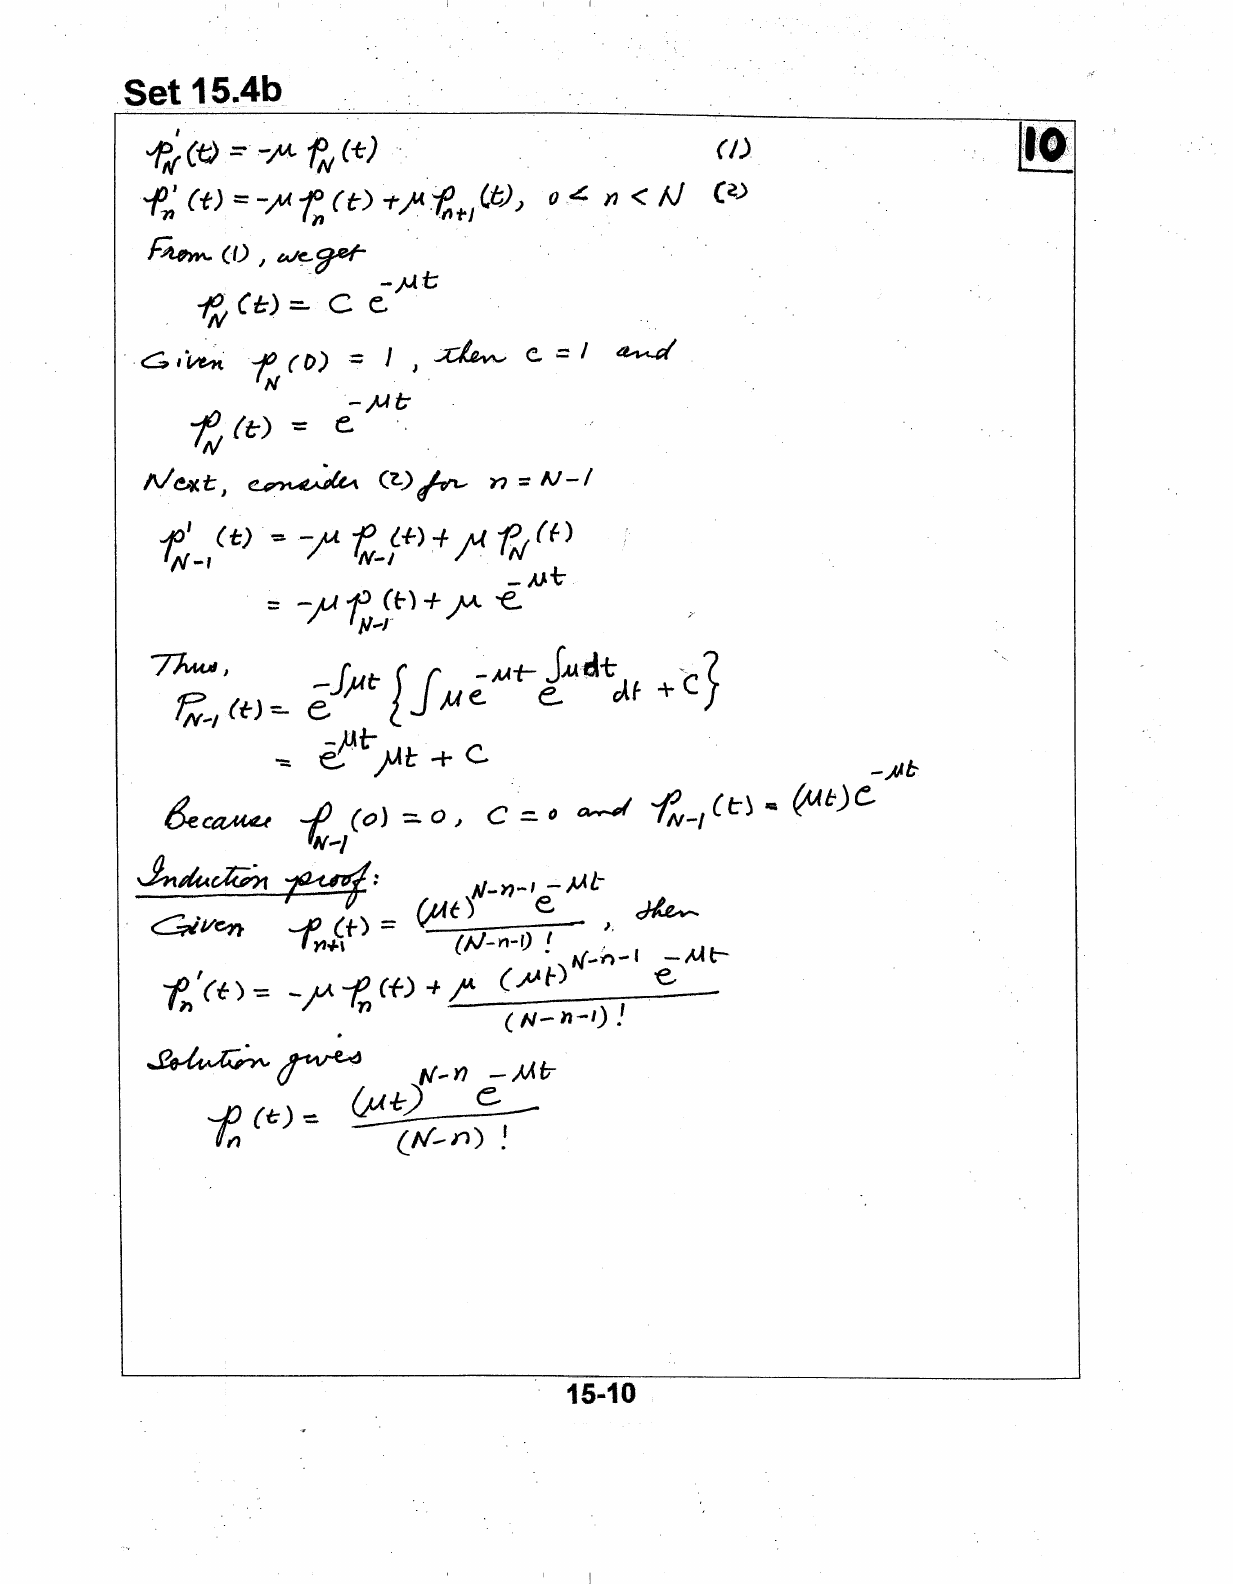 Set 15.4b
10
p'_N(t) = -μ p_N(t) (1)
p'_n(t) = -μ p_n(t) + μ p_{n+1}(t), 0 < n < N (2)
From (1), we get
p_N(t) = C e^{-μt}
Given p_N(0) = 1, then c = 1 and
p_N(t) = e^{-μt}
Next, consider (2) for n = N-1
p'_{N-1}(t) = -μ p_{N-1}(t) + μ p_N(t)
= -μ p_{N-1}(t) + μ e^{-μt}
Thus,
P_{N-1}(t) = e^{-∫μt} { ∫ μ e^{-μt} e^{∫μdt} dt + C }
= e^{-μt} μt + C
Because p_{N-1}(0) = 0, C = 0 and p_{N-1}(t) = (μt) e^{-μt}
Induction proof:
Given p_{n+1}(t) = (μt)^{N-n-1} e^{-μt} / (N-n-1)!, then
p_n'(t) = -μ p_n(t) + μ (μt)^{N-n-1} e^{-μt} / (N-n-1)!
Solution gives
p_n(t) = (μt)^{N-n} e^{-μt} / (N-n)!
15-10